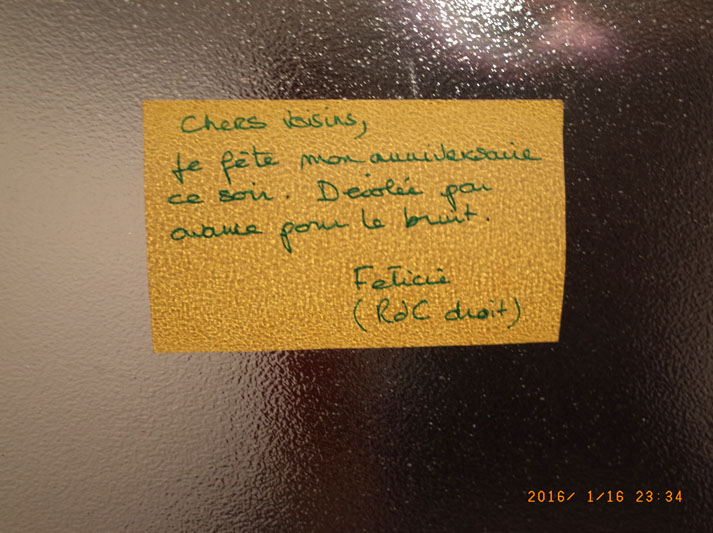 Chers voisins,
Je fête mon anniversaire
ce soir. Désolée par
avance pour le bruit.
Felicie
(RdC droit)
2016/ 1/16 23:34